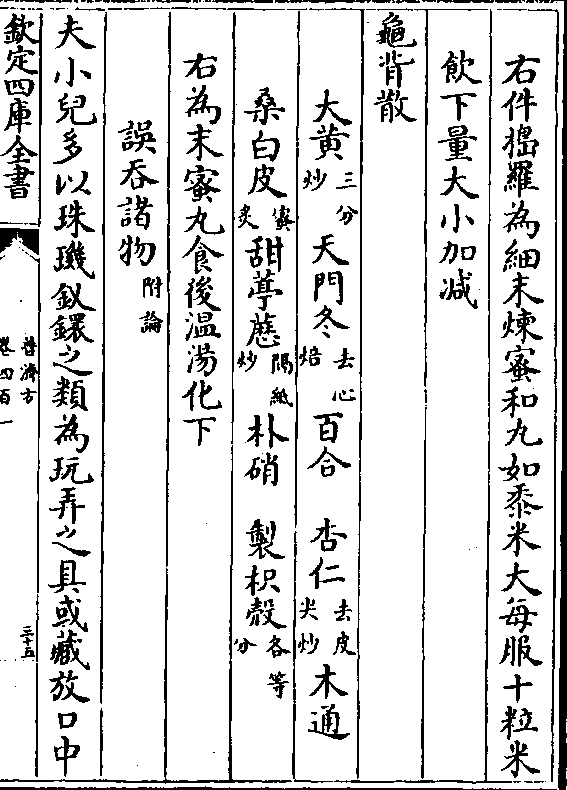 右件搗羅為細末煉蜜和丸如黍米大每服十粒米
飲下量大小加減
龜背散
大黄三分炒 天門冬去心焙 百合 杏仁去皮尖炒 木通
桑白皮蜜炙 甜葶藶隔紙炒 朴硝 製枳殼各等分
右為末蜜丸食後温湯化下
誤吞諸物附論
夫小兒多以珠璣釵鐶之類為玩弄之具或藏放口中
欽定四庫全書
普濟方
卷四百一
三十五